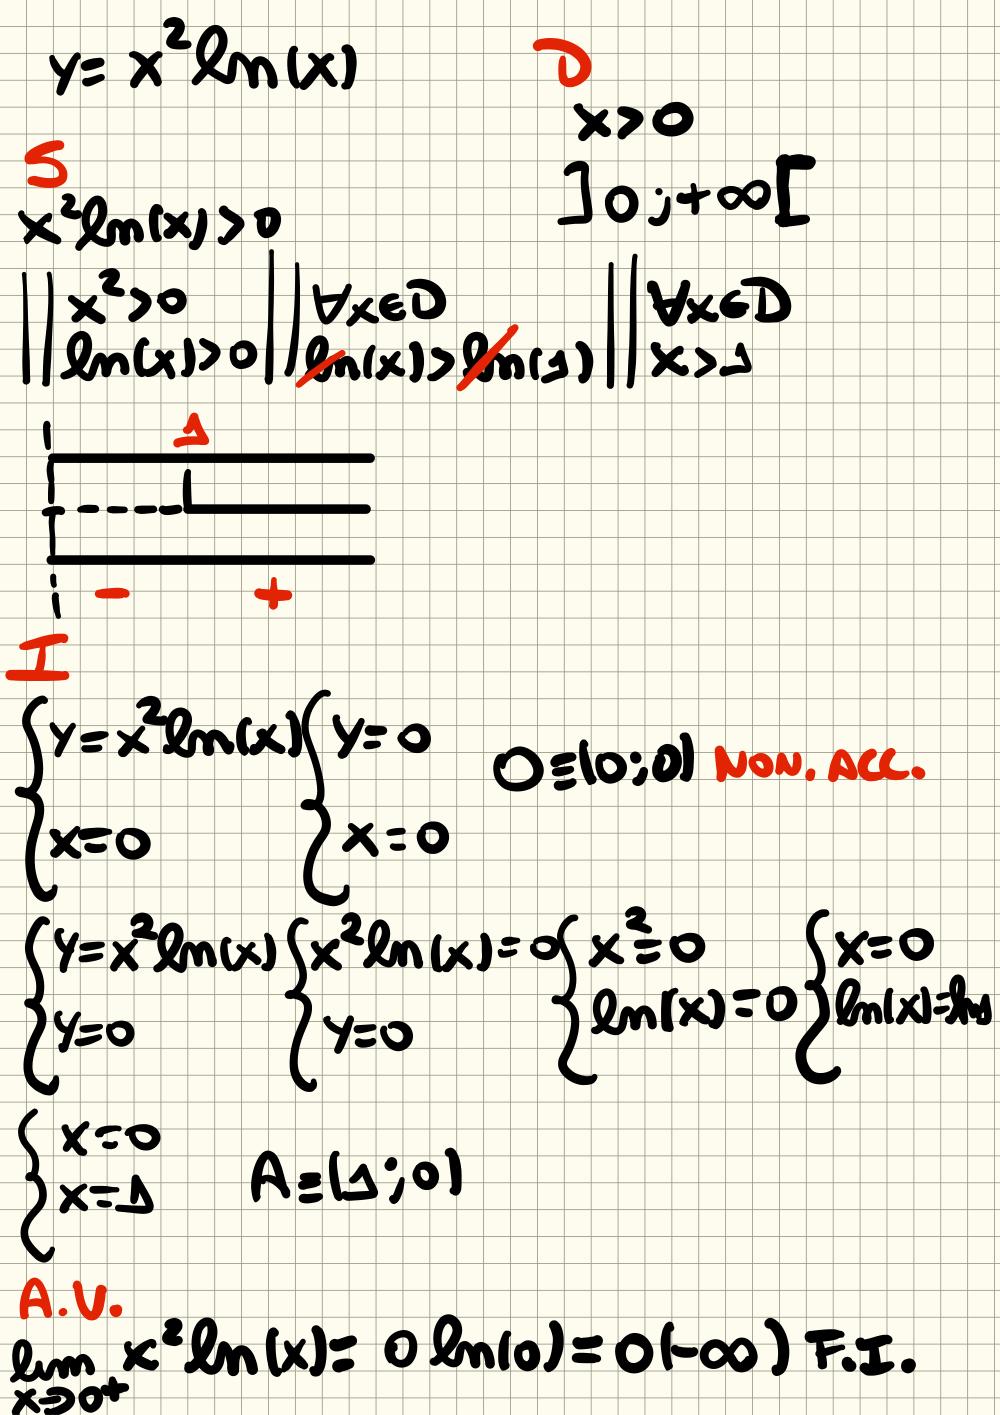 y= x²ln(x)
D
x>0
]0;+∞[
S
x²ln(x)>0
x²>0
ln(x)>0
∀x∈D
ln(x)>ln(1)
∀x∈D
x>1
1
- +
I
y=x²ln(x)
x=0
y=0
x=0
O≡(0;0) NON. ACC.
y=x²ln(x)
y=0
x²ln(x)=0
y=0
x²=0
ln(x)=0
x=0
ln(x)=ln1
x=0
x=1
A≡(1;0)
A.V.
lim x²ln(x)= 0 ln(0)=0(-∞) F.I.
x→0⁺